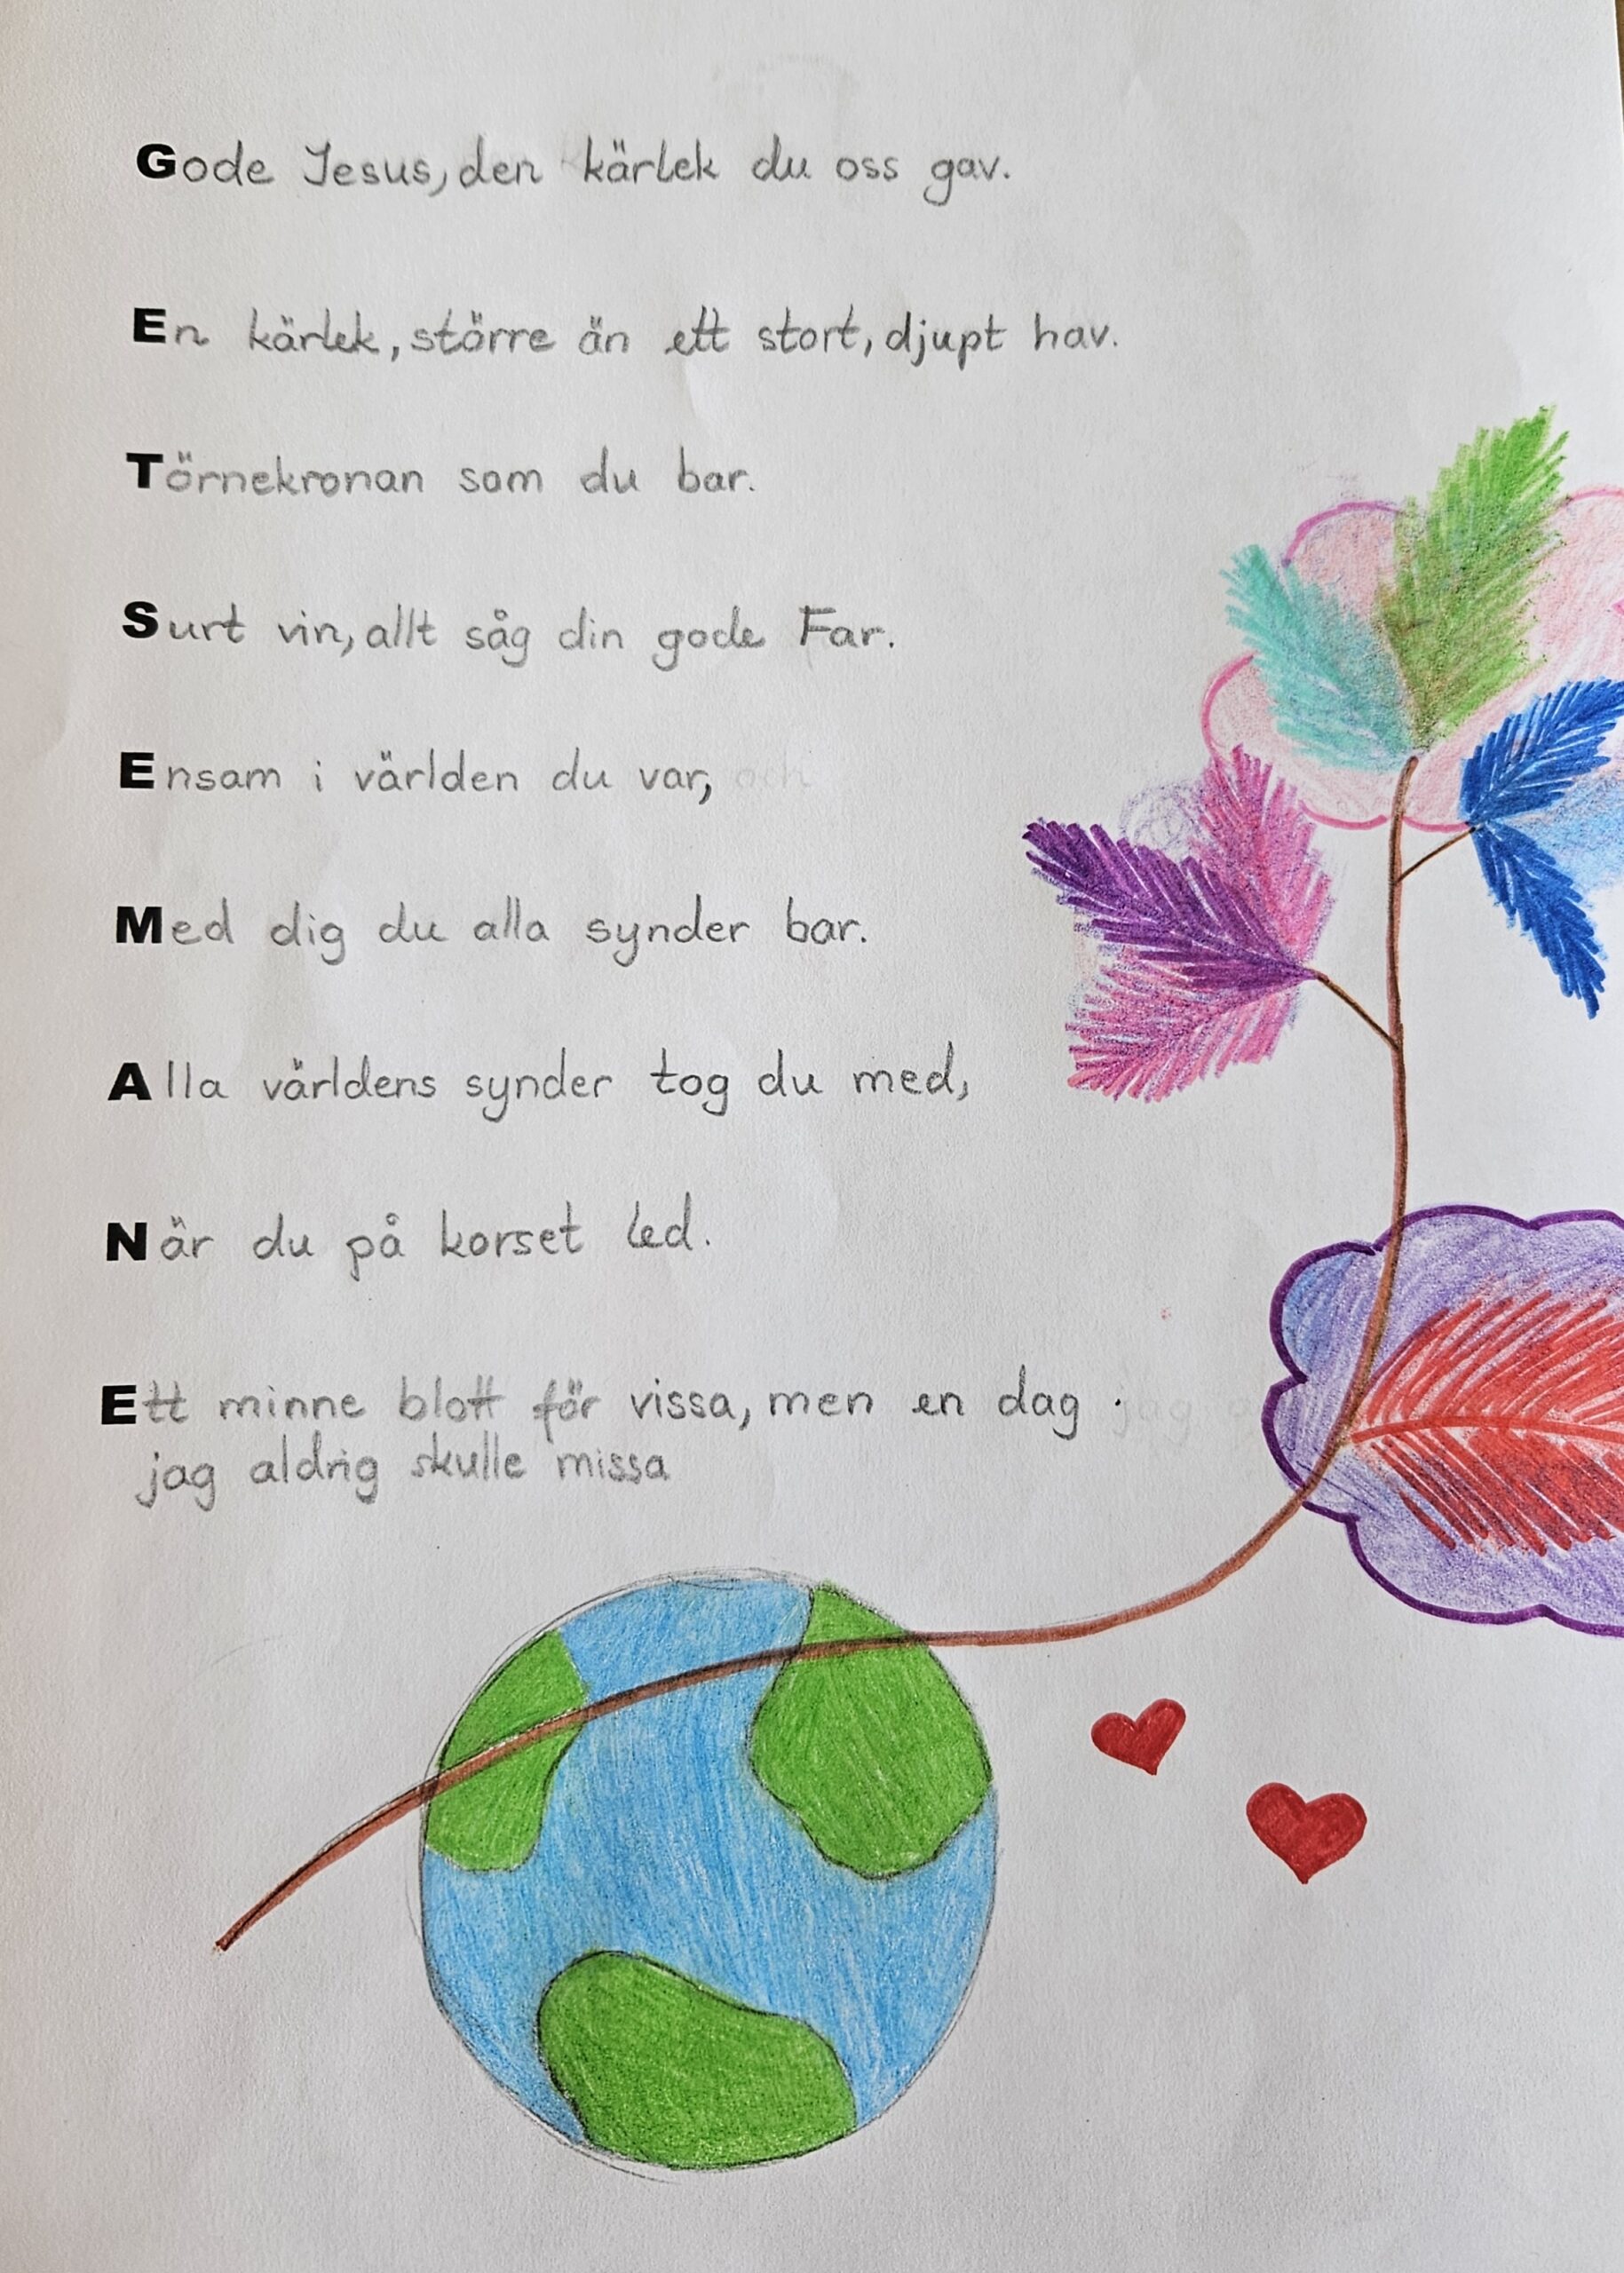 Gode Jesus, den kärlek du oss gav.
En kärlek, större än ett stort, djupt hav.
Törnekronan som du bar.
Surt vin, allt såg din gode Far.
Ensam i världen du var,
Med dig du alla synder bar.
Alla världens synder tog du med,
När du på korset led.
Ett minne blott för vissa, men en dag
jag aldrig skulle missa